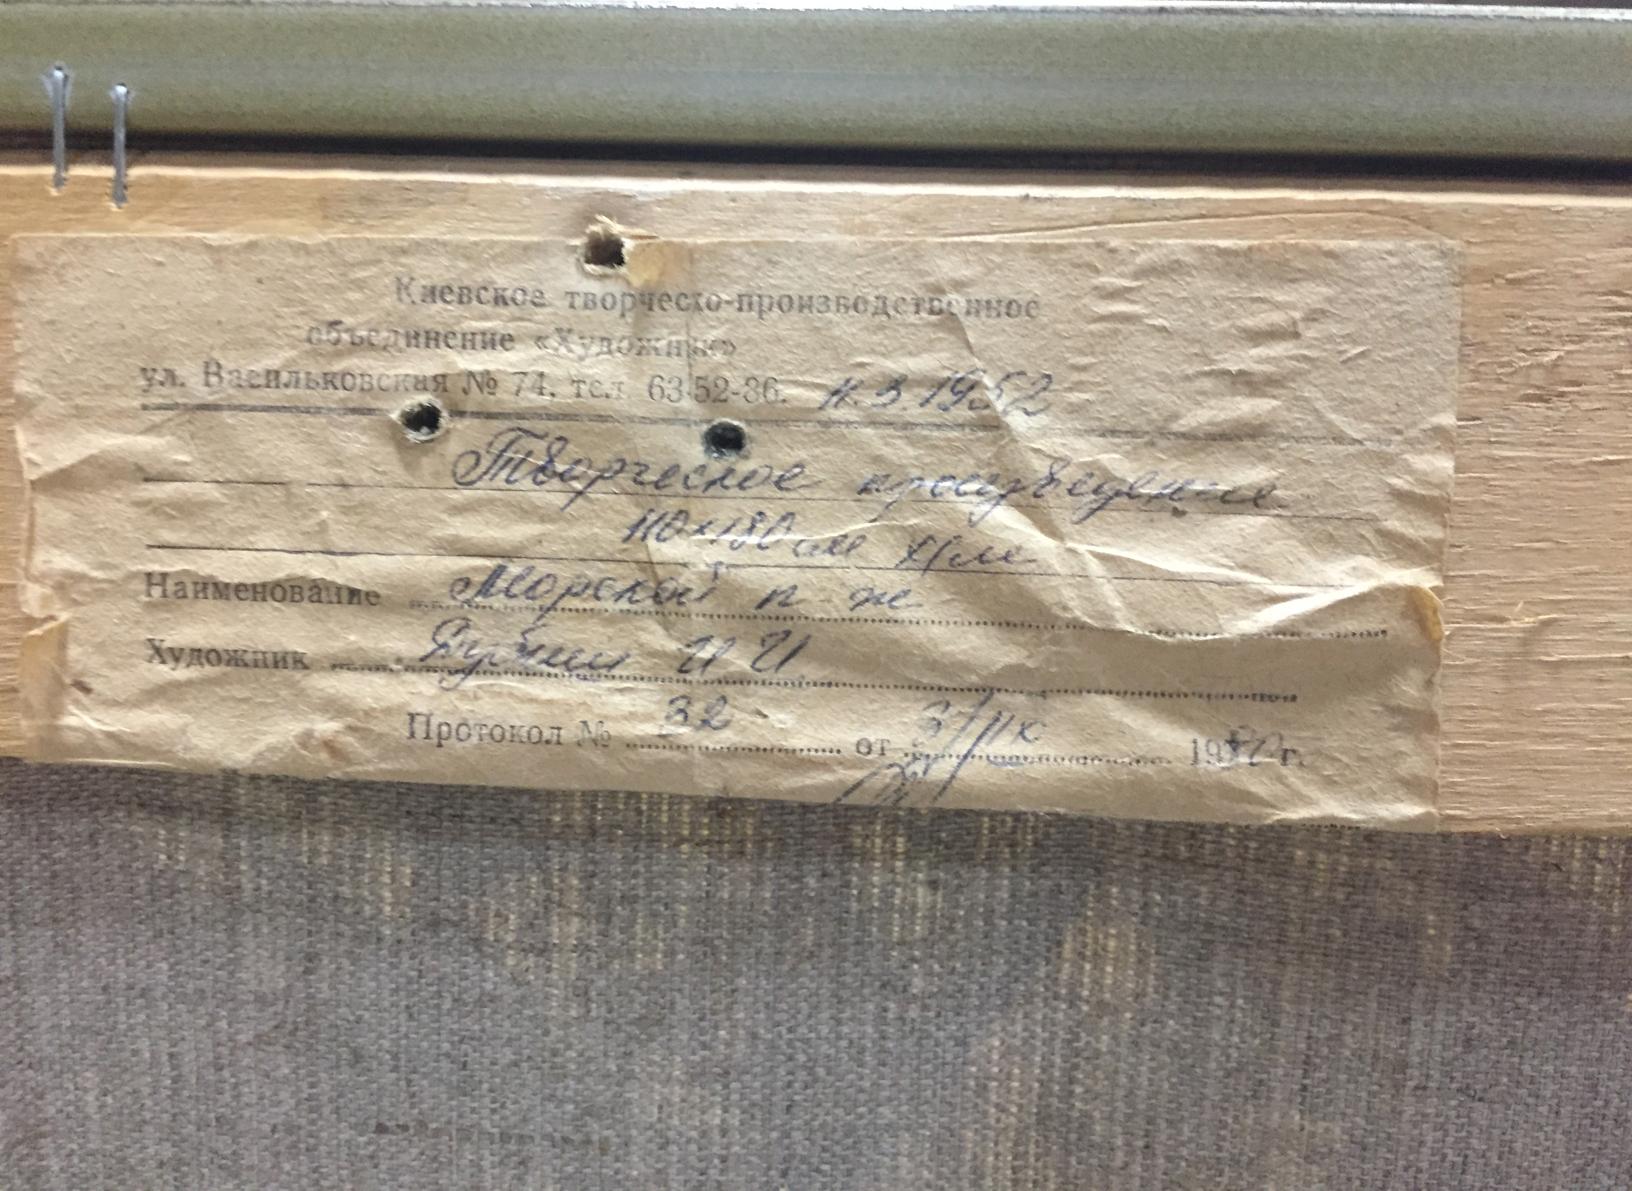 Киевское творческо-производственное
объединение «Художник»
ул. Васильковская № 74. тел 63-52-36. н.з.1952
Творческое произведение
110х180 см х/м
Наименование Морской п-ж
Художник И И
Протокол № 32 от 3/IX 19 г.